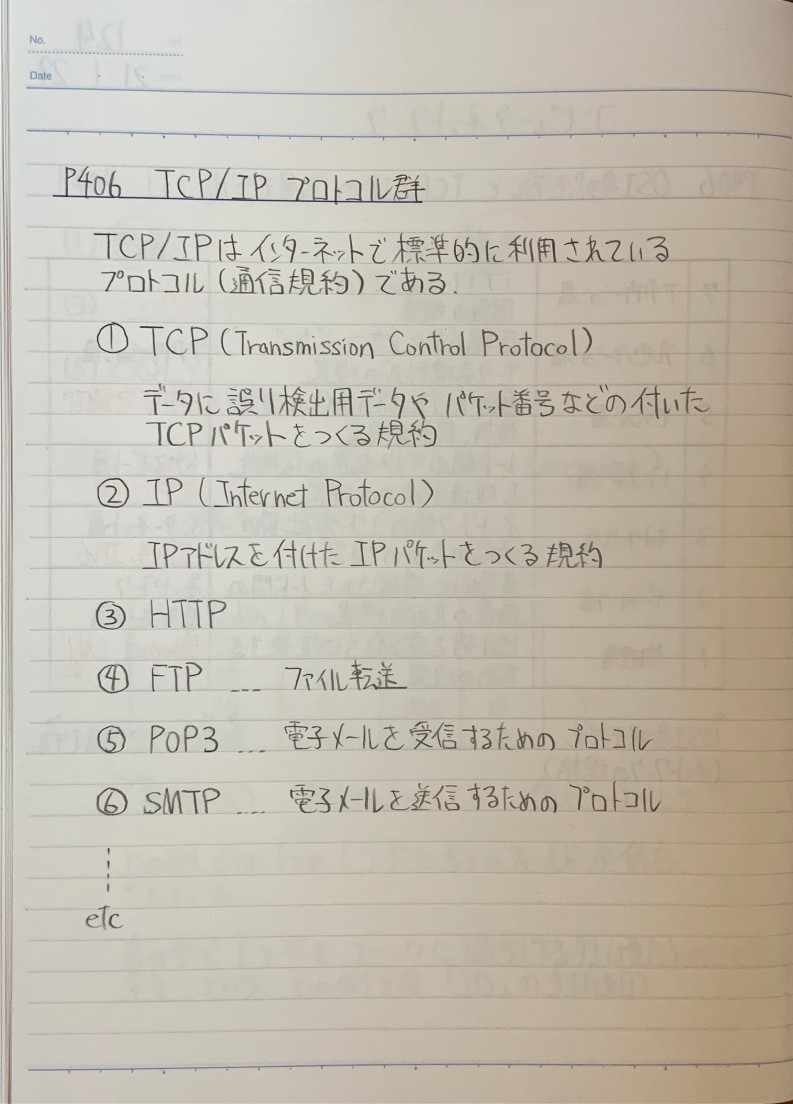 No.
Date
P406 TCP/IP プロトコル群
TCP/IPはインターネットで標準的に利用されている
プロトコル(通信規約)である.
① TCP (Transmission Control Protocol)
データに誤り検出用データや パケット番号などの付いた
TCPパケットをつくる規約
② IP (Internet Protocol)
IPアドレスを付けた IPパケットをつくる規約
③ HTTP
④ FTP .... ファイル転送
⑤ POP3 .... 電子メールを受信するためのプロトコル
⑥ SMTP .... 電子メールを送信するためのプロトコル
etc